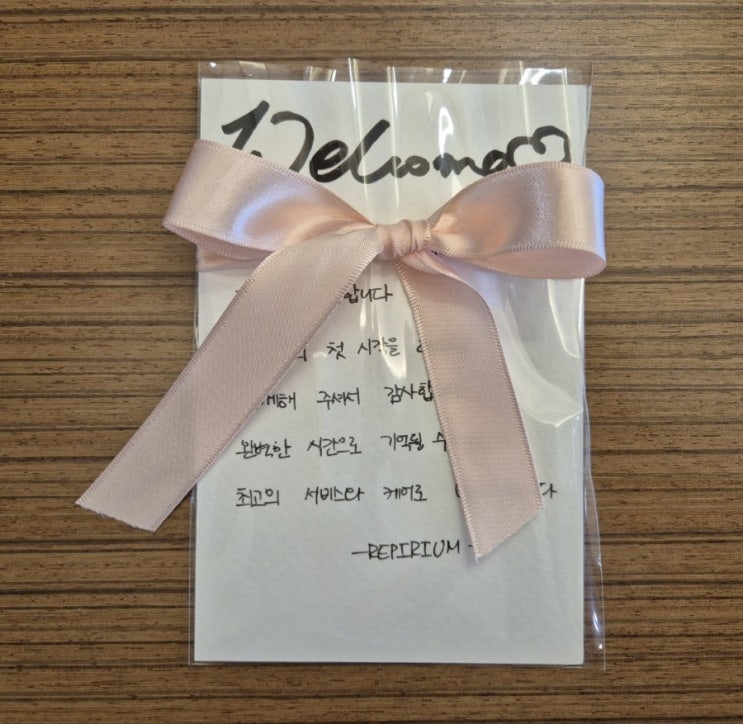 Welcome♡
첫 시간을
주셔서 감사합
완벽한 시간으로 기억될 수
최고의 서비스와 케어로
-REPIRIUM-